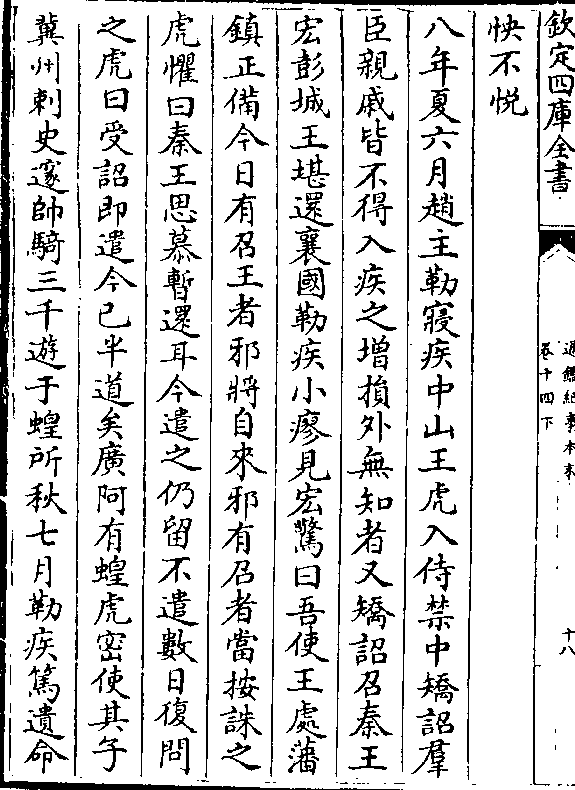 欽定四庫全書
通鑑紀事本末
卷十四下
十八
怏不悦
八年夏六月趙主勒寢疾中山王虎入侍禁中矯詔羣
臣親戚皆不得入疾之增損外無知者又矯詔召秦王
宏彭城王堪還襄國勒疾小瘳見宏驚曰吾使王處藩
鎮正備今日有召王者邪將自來邪有召者當按誅之
虎懼曰秦王思慕暫還耳今遣之仍留不遣數日復問
之虎曰受詔即遣今已半道矣廣阿有蝗虎密使其子
冀州刺史邃帥騎三千遊于蝗所秋七月勒疾篤遺命